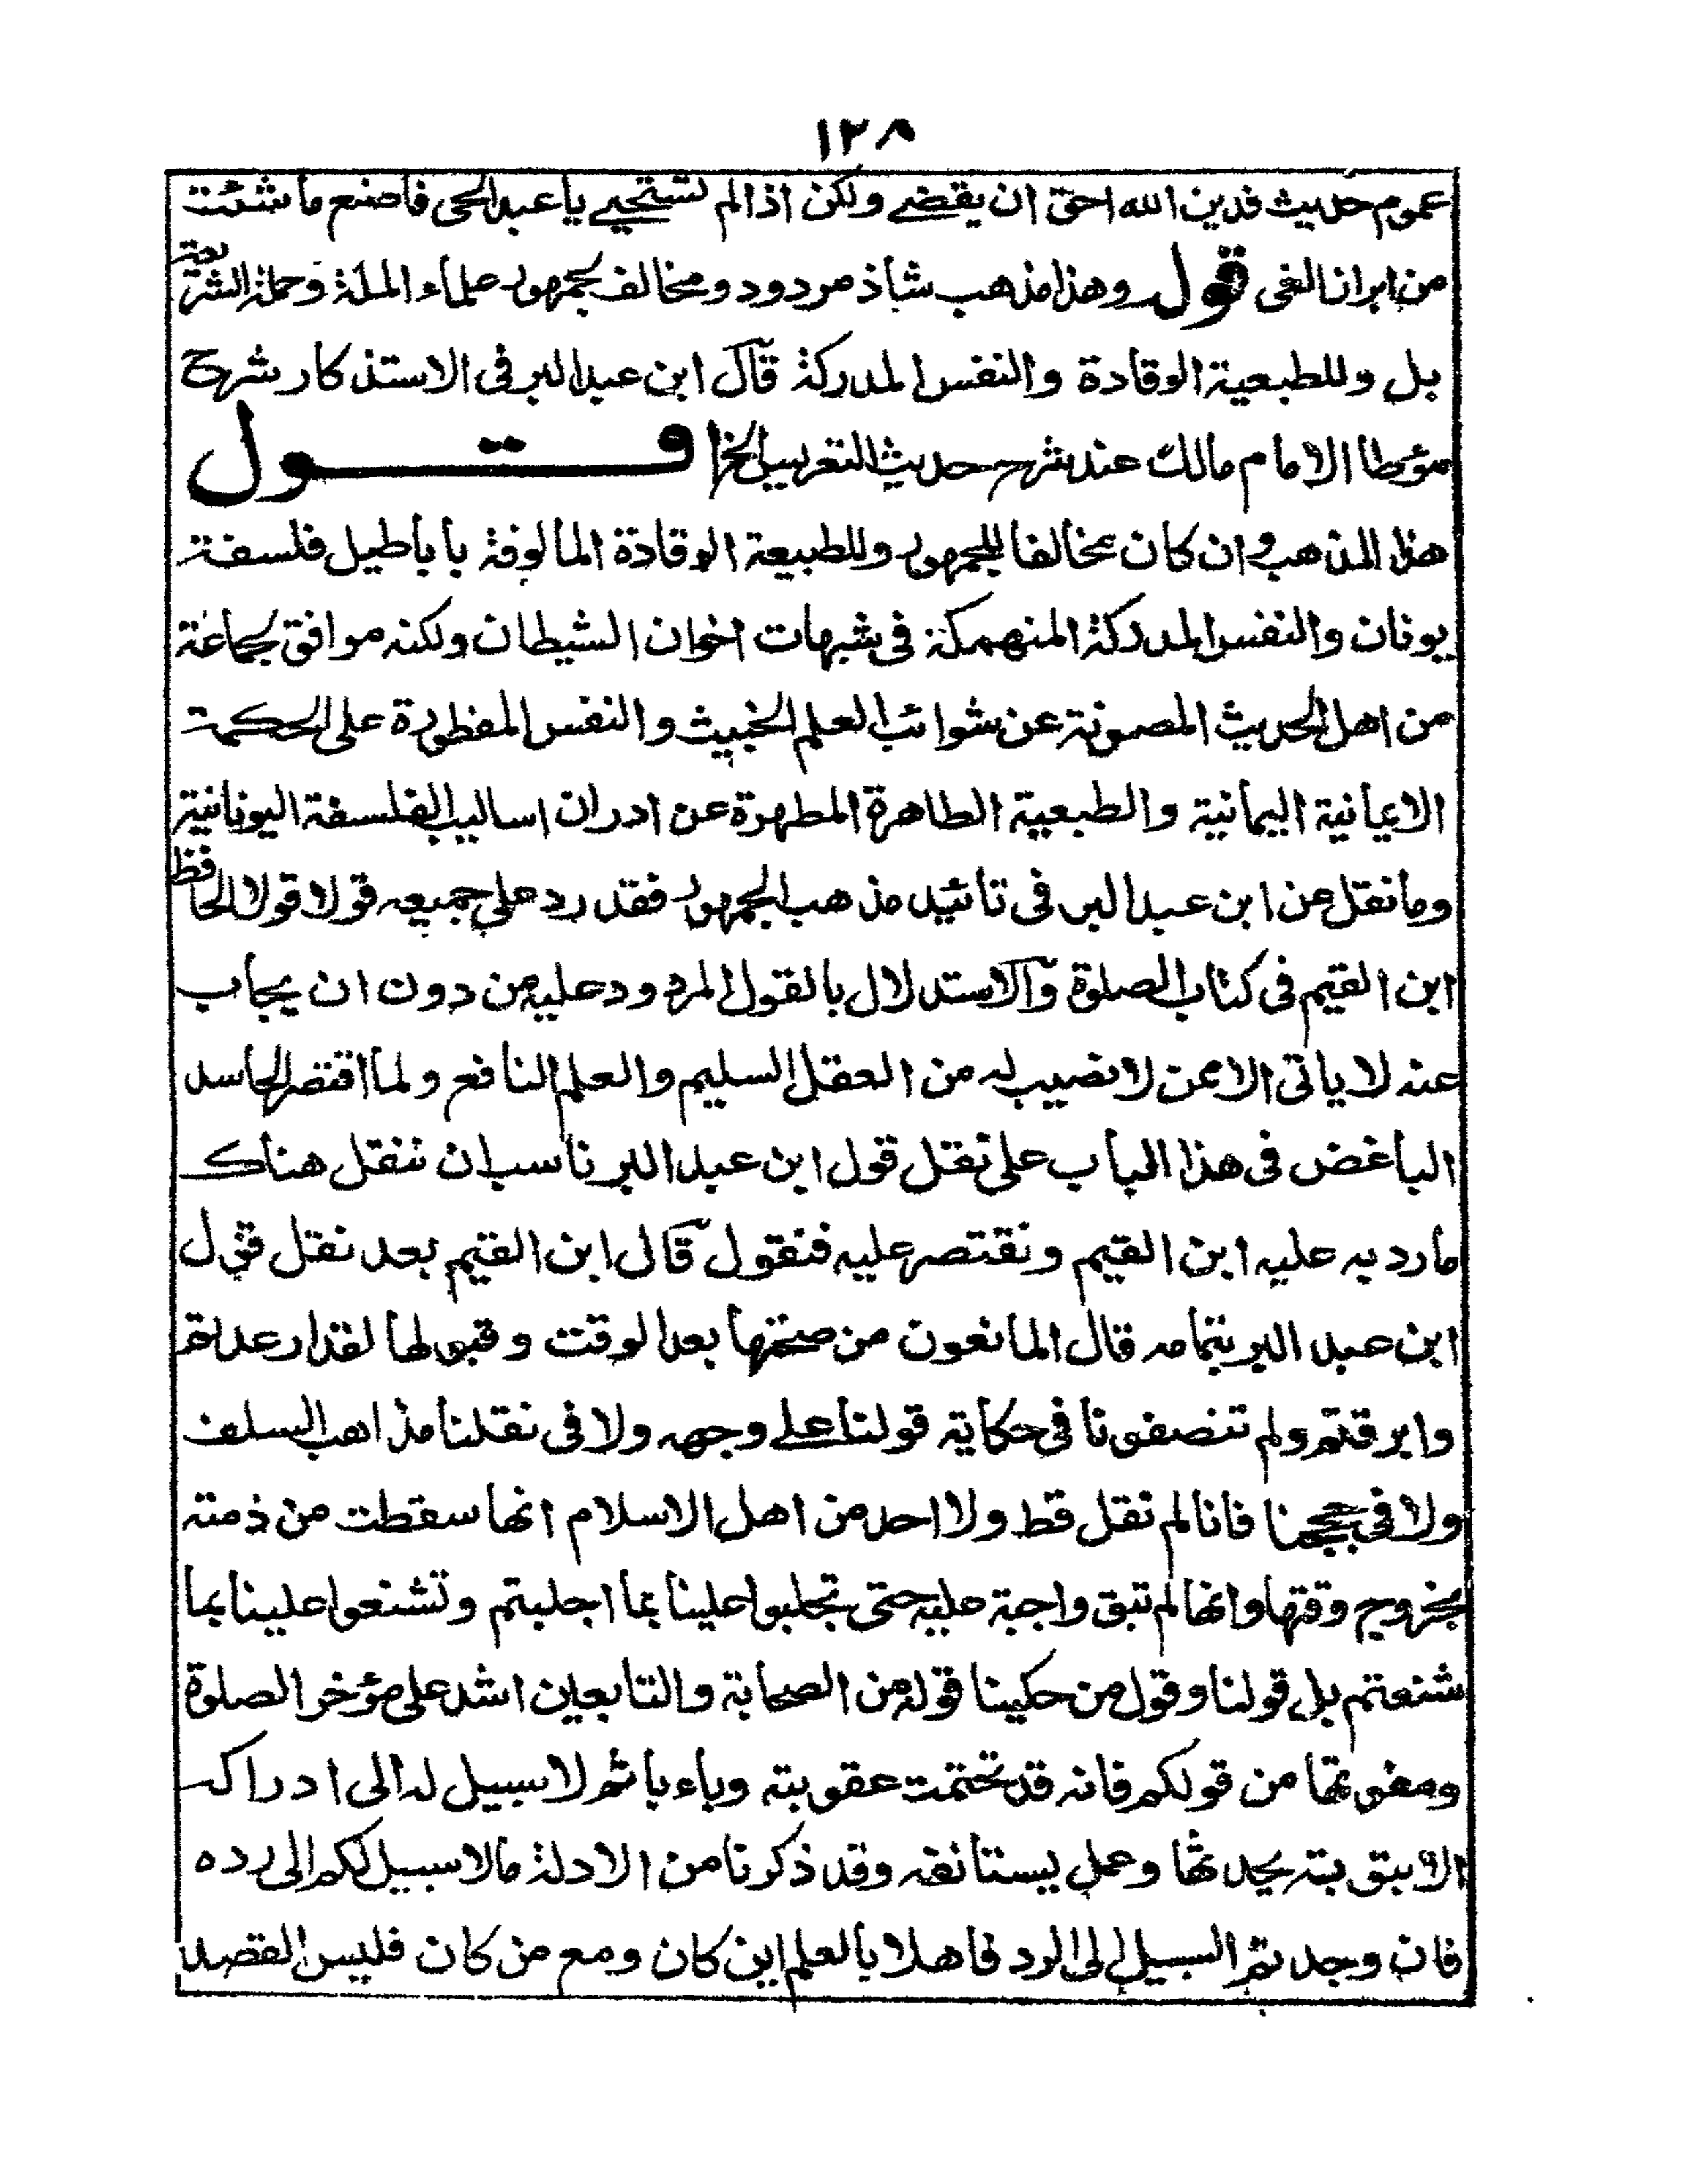 ١٢٨
عموم حديث فدين الله احق ان يقضے ولكن اذا لم تستحيے يا عبد الحى فاصنع ما شئت
من ابراز الغى قوله وهذا مذهب شاذ مردود ومخالف لجمهور علماء الملة وحملة الشريعة
بل وللطبعية الوقادة والنفس المدركة قال ابن عبد البر فى الاستذكار شرح
مؤطا الامام مالك عند شرح حديث التعريس الخ اقـــــول
هذا المذهب وان كان مخالفا للجمهور وللطبيعة الوقادة المالوفة باباطيل فلسفة
يونان والنفس المدركة المنهمكة فى شبهات اخوان الشيطان ولكنه موافق لجماعة
من اهل الحديث المصونة عن شوائب العلم الخبيث والنفس المفطورة على الحكمة
الايمانية اليمانية والطبعية الطاهرة المطهرة عن ادران اساليب الفلسفة اليونانية
وما نقل عن ابن عبد البر فى تائيد مذهب الجمهور فقد رد على جميعه قولا قولا الحافظ
ابن القيم فى كتاب الصلوة والاستدلال بالقول المردود عليه من دون ان يجاب
عنه لا ياتى الا ممن لا نصيب له من العقل السليم والعلم النافع ولما اقتصر الحاسد
الباغض فى هذا الباب على نقل قول ابن عبد البر ناسب ان ننقل هناك
ما رد به عليه ابن القيم ونقتصر عليه فنقول قال ابن القيم بعد نقل قول
ابن عبد البر بتمامه قال المانعون من صحتها بعد الوقت وقبولها لقد ارعدتم
وابرقتم ولم تنصفونا فى حكاية قولنا علے وجهه ولا فى نقلنا مذاهب السلف
ولا فى حججنا فانا لم نقل قط ولا احد من اهل الاسلام انها سقطت من ذمته
بخروج وقتها وانها لم تبق واجبة عليه حتى تجلبوا علينا بما اجلبتم وتشنعوا علينا بما
شنعتم بل قولنا وقول من حكينا قوله من الصحابة والتابعين اشد على مؤخر الصلوة
ومفوتها من قولكم فانه قد تحتمت عقوبته وباء باثم لا سبيل له الى ادراكه
الا بتوبة يحدثها وعمل يستانفه وقد ذكرنا من الادلة ما لا سبيل لكم الى رده
فان وجدتم السبيل الى الرد فاهلا بالعلم اين كان ومع من كان فليس القصد